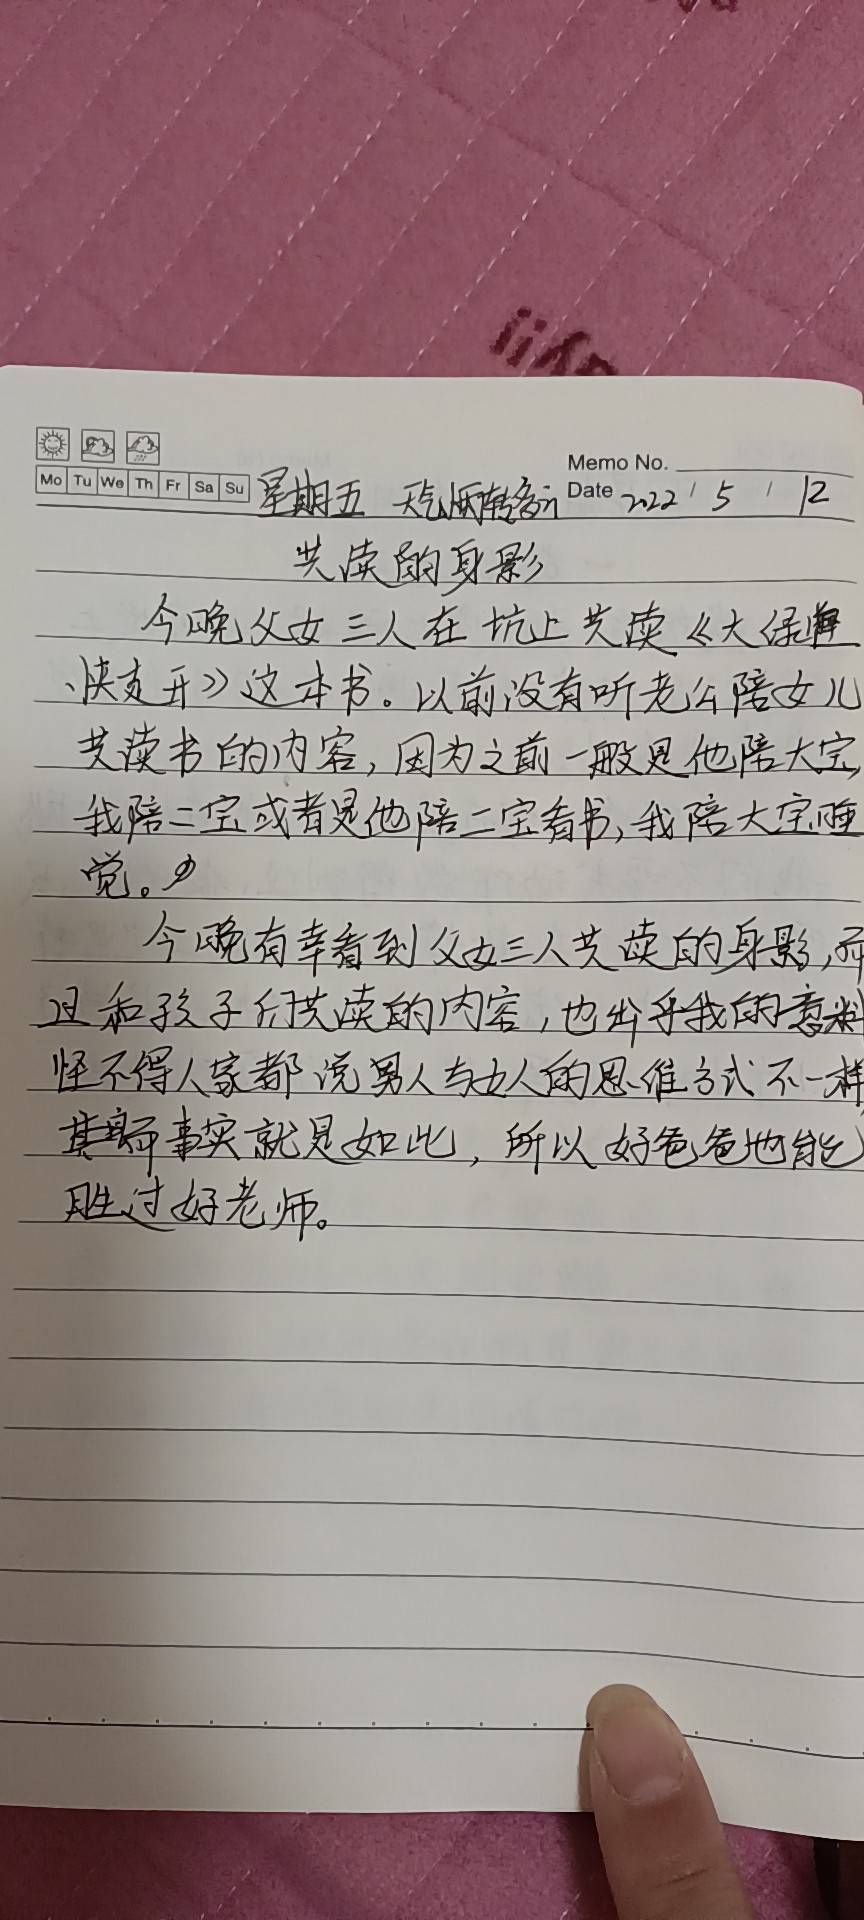 Memo No.
Mo Tu We Th Fr Sa Su 星期五 天气 Date 2022 / 5 / 12
共读的身影
今晚父女三人在坑上共读《大绿
快走开》这本书。以前没有听老公陪女儿
共读书的内容,因为之前一般是他陪大宝,
我陪二宝或者是他陪二宝看书,我陪大宝睡
觉。
今晚有幸看到父女三人共读的身影,而
且和孩子们共读的内容,也出乎我的意料
怪不得人家都说男人与女人的思维方式不一样
其事实就是如此,所以好爸爸也能
胜过好老师。